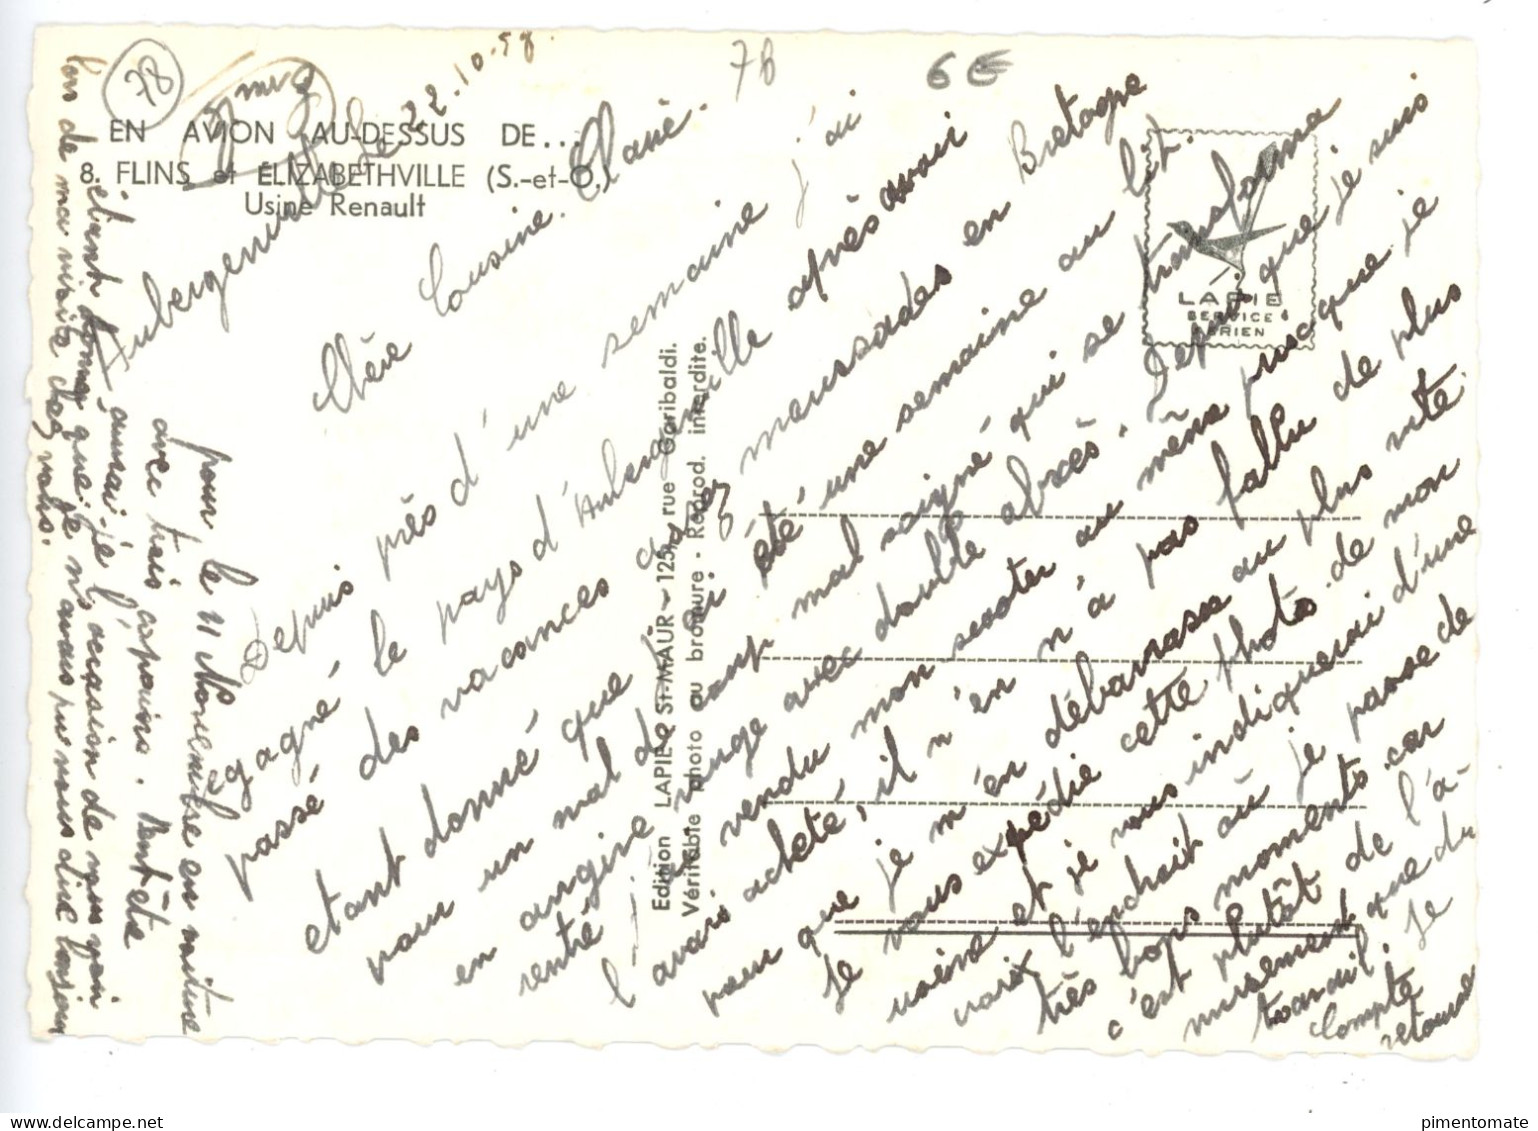 78
78
6 €
EN AVION AU-DESSUS DE...
8. FLINS et ÉLIZABETHVILLE (S.-et-O.)
Usine Renault
LAPIE
SERVICE
AERIEN
Edition LAPIE - St-MAUR - 125, rue Garibaldi.
Véritable photo au bromure - Reprod. interdite.
Aubergenville le 22.10.58.
Chère Cousine.
Depuis près d'une semaine j'ai
regagné le pays d'Aubergenville après avoir
passé des vacances assez maussades en Bretagne
étant donné que j'ai été une semaine au lit.
pour un mal de coup mal soigné qui se transforma
en angine rouge avec double abcès. Depuis que je suis
rentré j'ai vendu mon scooter au même prix que je
l'avais acheté, il n'en n'a pas fallu de plus
pour que je m'en débarrasse au plus vite.
Je vous expédie cette photo de mon
usine et je vous indiquerai d'une
croix l'endroit où je passe de
très bons moments car
c'est plutôt de l'a-
musement que du
travail. Je
compte
retourne
pour le 11 Novembre en voiture
avec trois copains. Peut-être
aurai-je l'occasion de vous voir
étant donné que je n'avais pu vous dire bonjour
lors de ma visite chez vous.
pimentomate